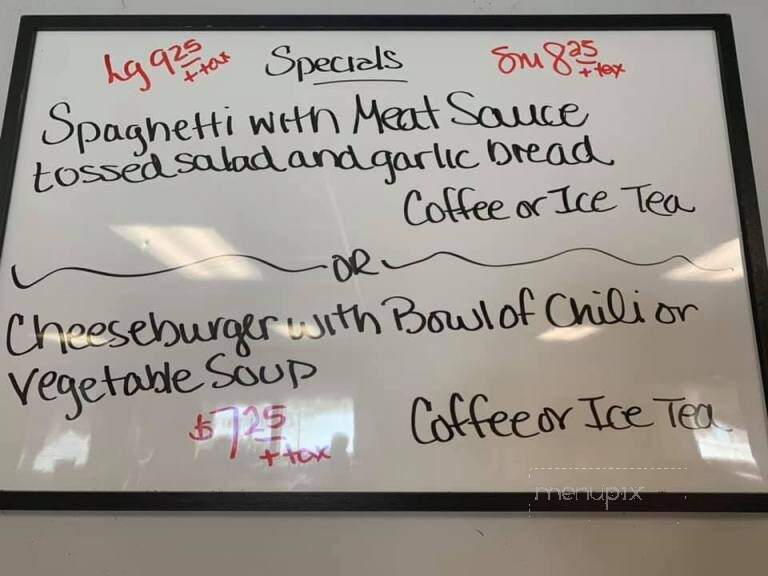 Lg 9 25 + tax Specials Sm 8 25 + tax
Spaghetti with Meat Sauce
tossed salad and garlic bread
Coffee or Ice Tea
OR
Cheeseburger with Bowl of Chili or
Vegetable Soup
$7 25 + tax
Coffee or Ice Tea
menupix